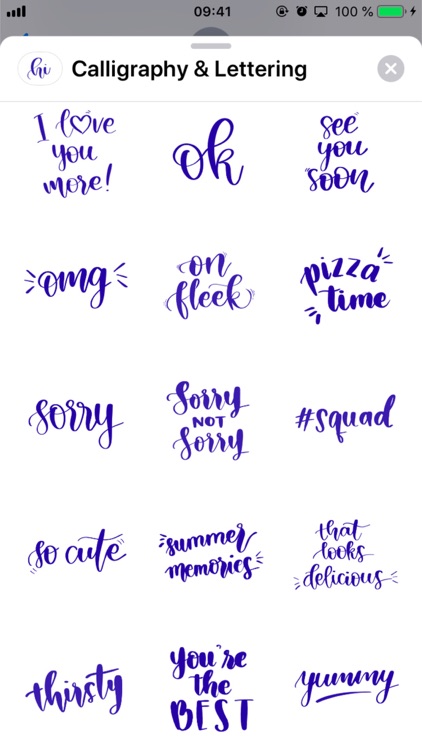 09:41
100 %
hi
Calligraphy & Lettering
I love
you
more!
ok
see
you
soon
omg
on
fleek
pizza
time
sorry
Sorry
NOT
Sorry
#squad
so cute
summer
memories
that
looks
delicious
thirsty
you're
the
BEST
yummy